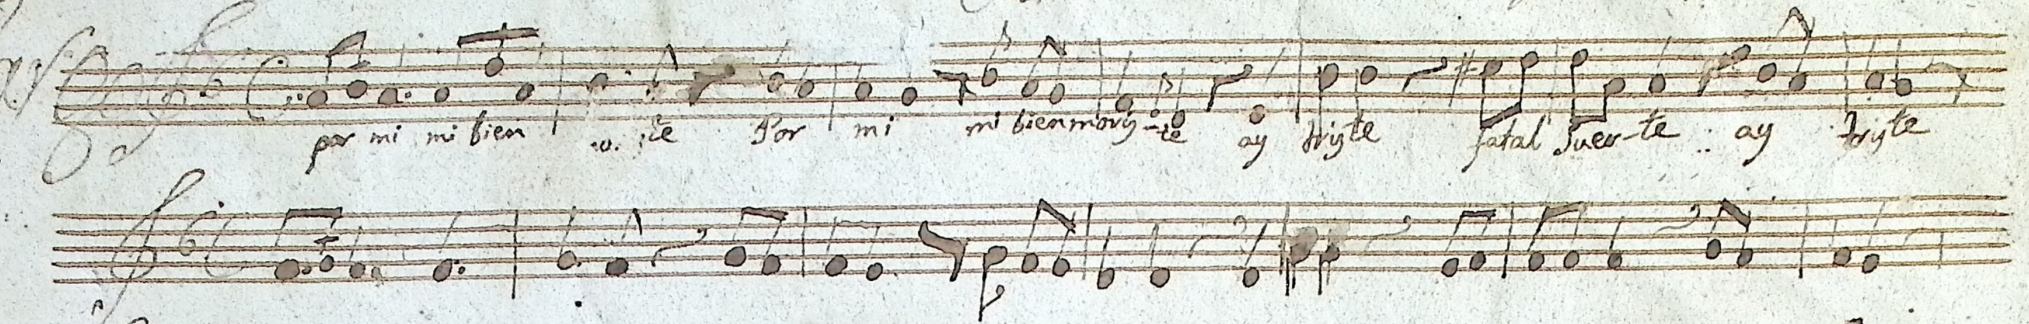 por mi mi bien te Por mi mi bien mory-te ay tryte fatal Suer-te ay tryte